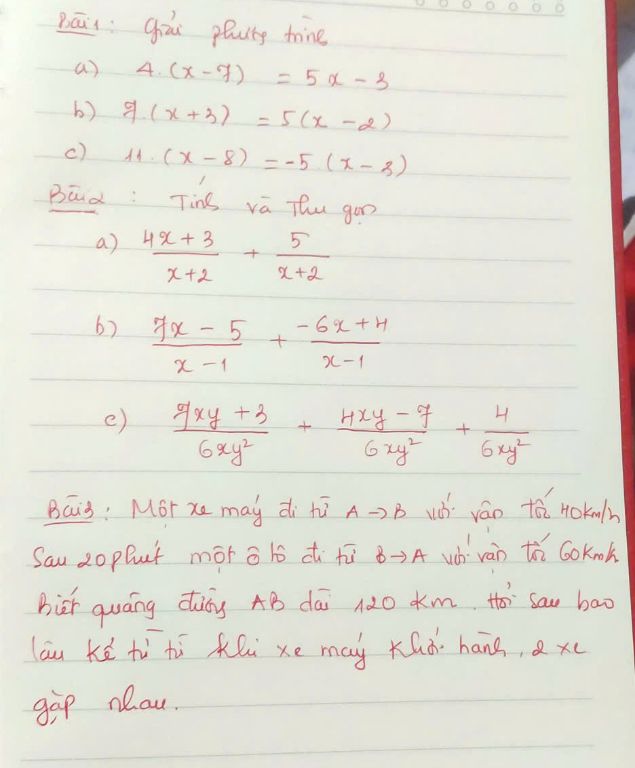 Bài 1: Giải phương trình
a) 4.(x-7) = 5x - 3
b) 7.(x+3) = 5(x-2)
c) 11.(x-8) = -5.(x-3)
Bài 2: Tính và Thu gọn
a) \frac{4x+3}{x+2} + \frac{5}{x+2}
b) \frac{7x-5}{x-1} + \frac{-6x+4}{x-1}
c) \frac{7xy+3}{6xy^2} + \frac{4xy-7}{6xy^2} + \frac{4}{6xy^2}
Bài 3: Một xe máy đi từ A → B với vận tốc 40km/h
Sau 20 phút một ô tô đi từ B → A với vận tốc 60km/h
Biết quãng đường AB dài 120 km. Hỏi sau bao
lâu kể từ từ khi xe máy khởi hành, 2 xe
gặp nhau.